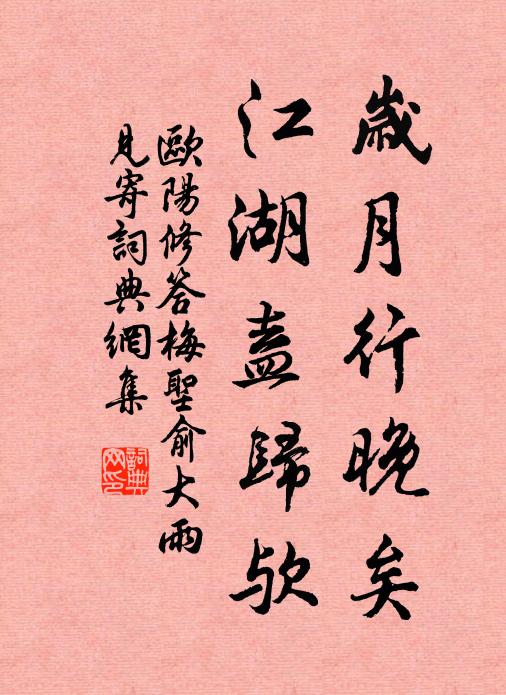 歲月行晚矣
江湖盍歸欤
歐陽修答梅聖俞大雨
見寄詞典網集
詞典
网印